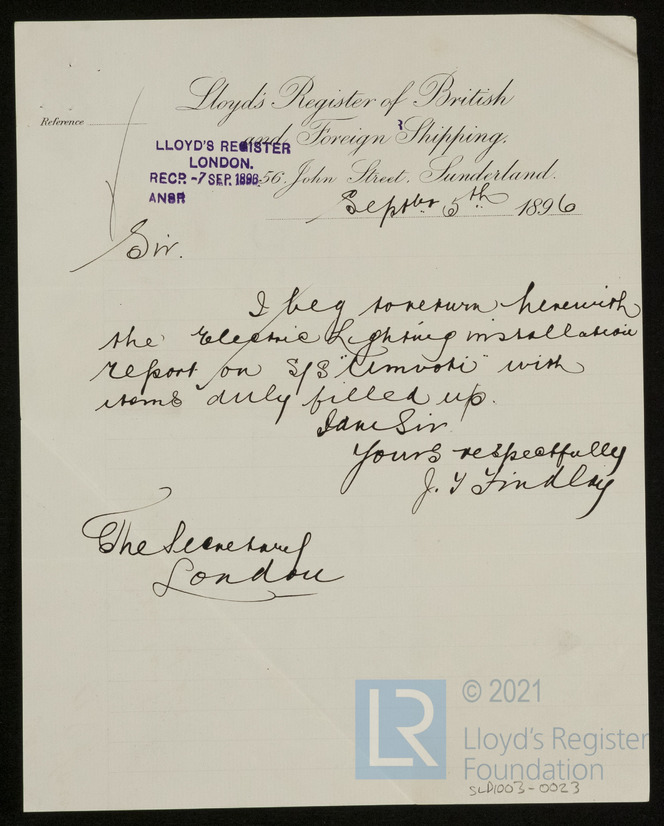 Lloyd's Register of British
Reference
and Foreign Shipping.
LLOYD'S REGISTER
LONDON.
RECD. -7 SEP. 1896
ANSR
56, John Street, Sunderland.
Septbr 5th 1896
Sir.
I beg to return herewith
the Electric Lighting installation
report on S/S "Umvoti" with
items duly filled up.
I am Sir
Yours respectfully
J. T. Findlay
The Secretary
London
LR
© 2021
Lloyd's Register
Foundation
SLD1003-0023